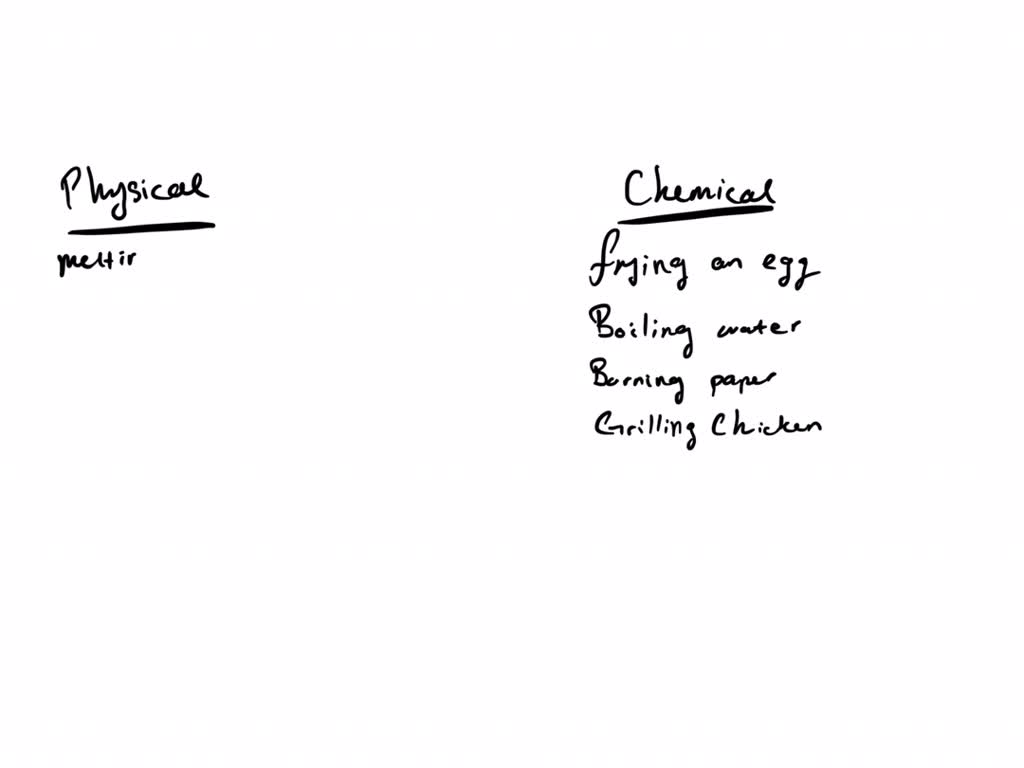 Physical
meltin
Chemical
frying an egg
Boiling water
Burning paper
Grilling Chicken